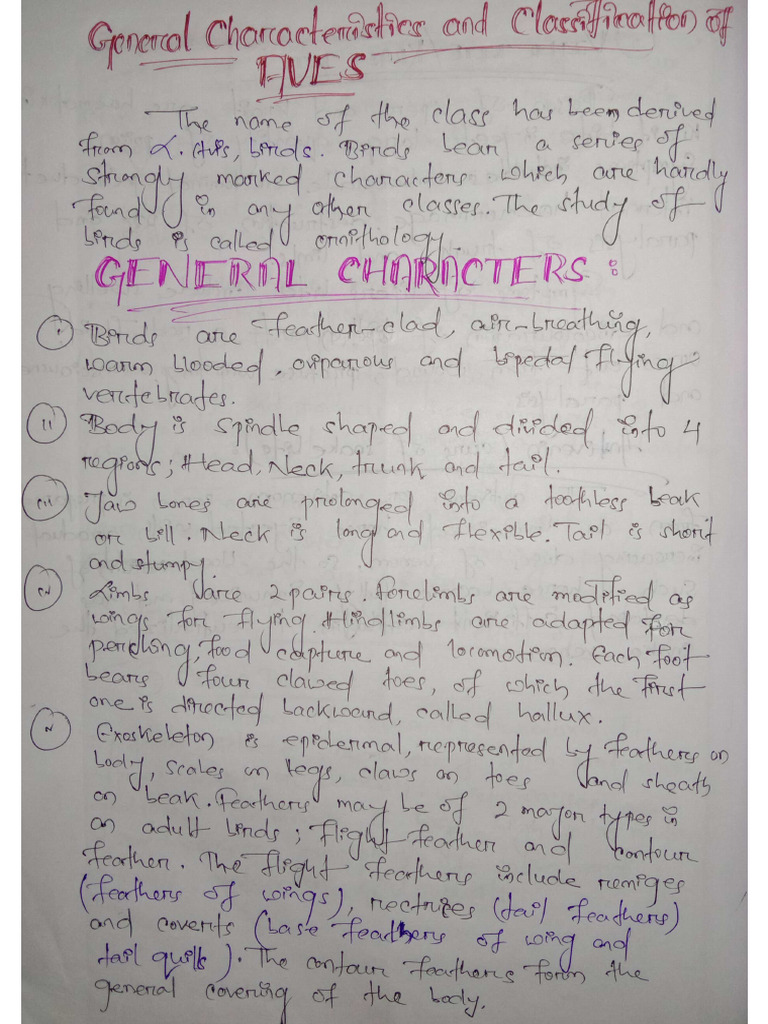 General Characteristics and Classification of
AVES
The name of the class has been derived
from L. Avis, birds. Birds bear a series of
strongly marked characters which are hardly
found in any other classes. The study of
birds is called ornithology.
GENERAL CHARACTERS:
i Birds are feather-clad, air-breathing,
warm blooded, oviparous and bipedal flying
vertebrates.
ii Body is spindle shaped and divided into 4
regions; Head, Neck, trunk and tail.
iii Jaw bones are prolonged into a toothless beak
or bill. Neck is long and flexible. Tail is short
and stumpy.
iv Limbs are 2 pairs. Forelimbs are modified as
wings for flying. Hindlimbs are adapted for
perching, food capture and locomotion. Each foot
bears four clawed toes, of which the first
one is directed backward, called hallux.
v Exoskeleton is epidermal, represented by feathers on
body, scales on legs, claws on toes and sheath
on beak. Feathers may be of 2 major types in
an adult birds; flight feather and contour
feather. The flight feathers include remiges
(feathers of wings), rectrices (tail feathers)
and coverts (base feathers of wing and
tail quills). The contour feathers form the
general covering of the body.